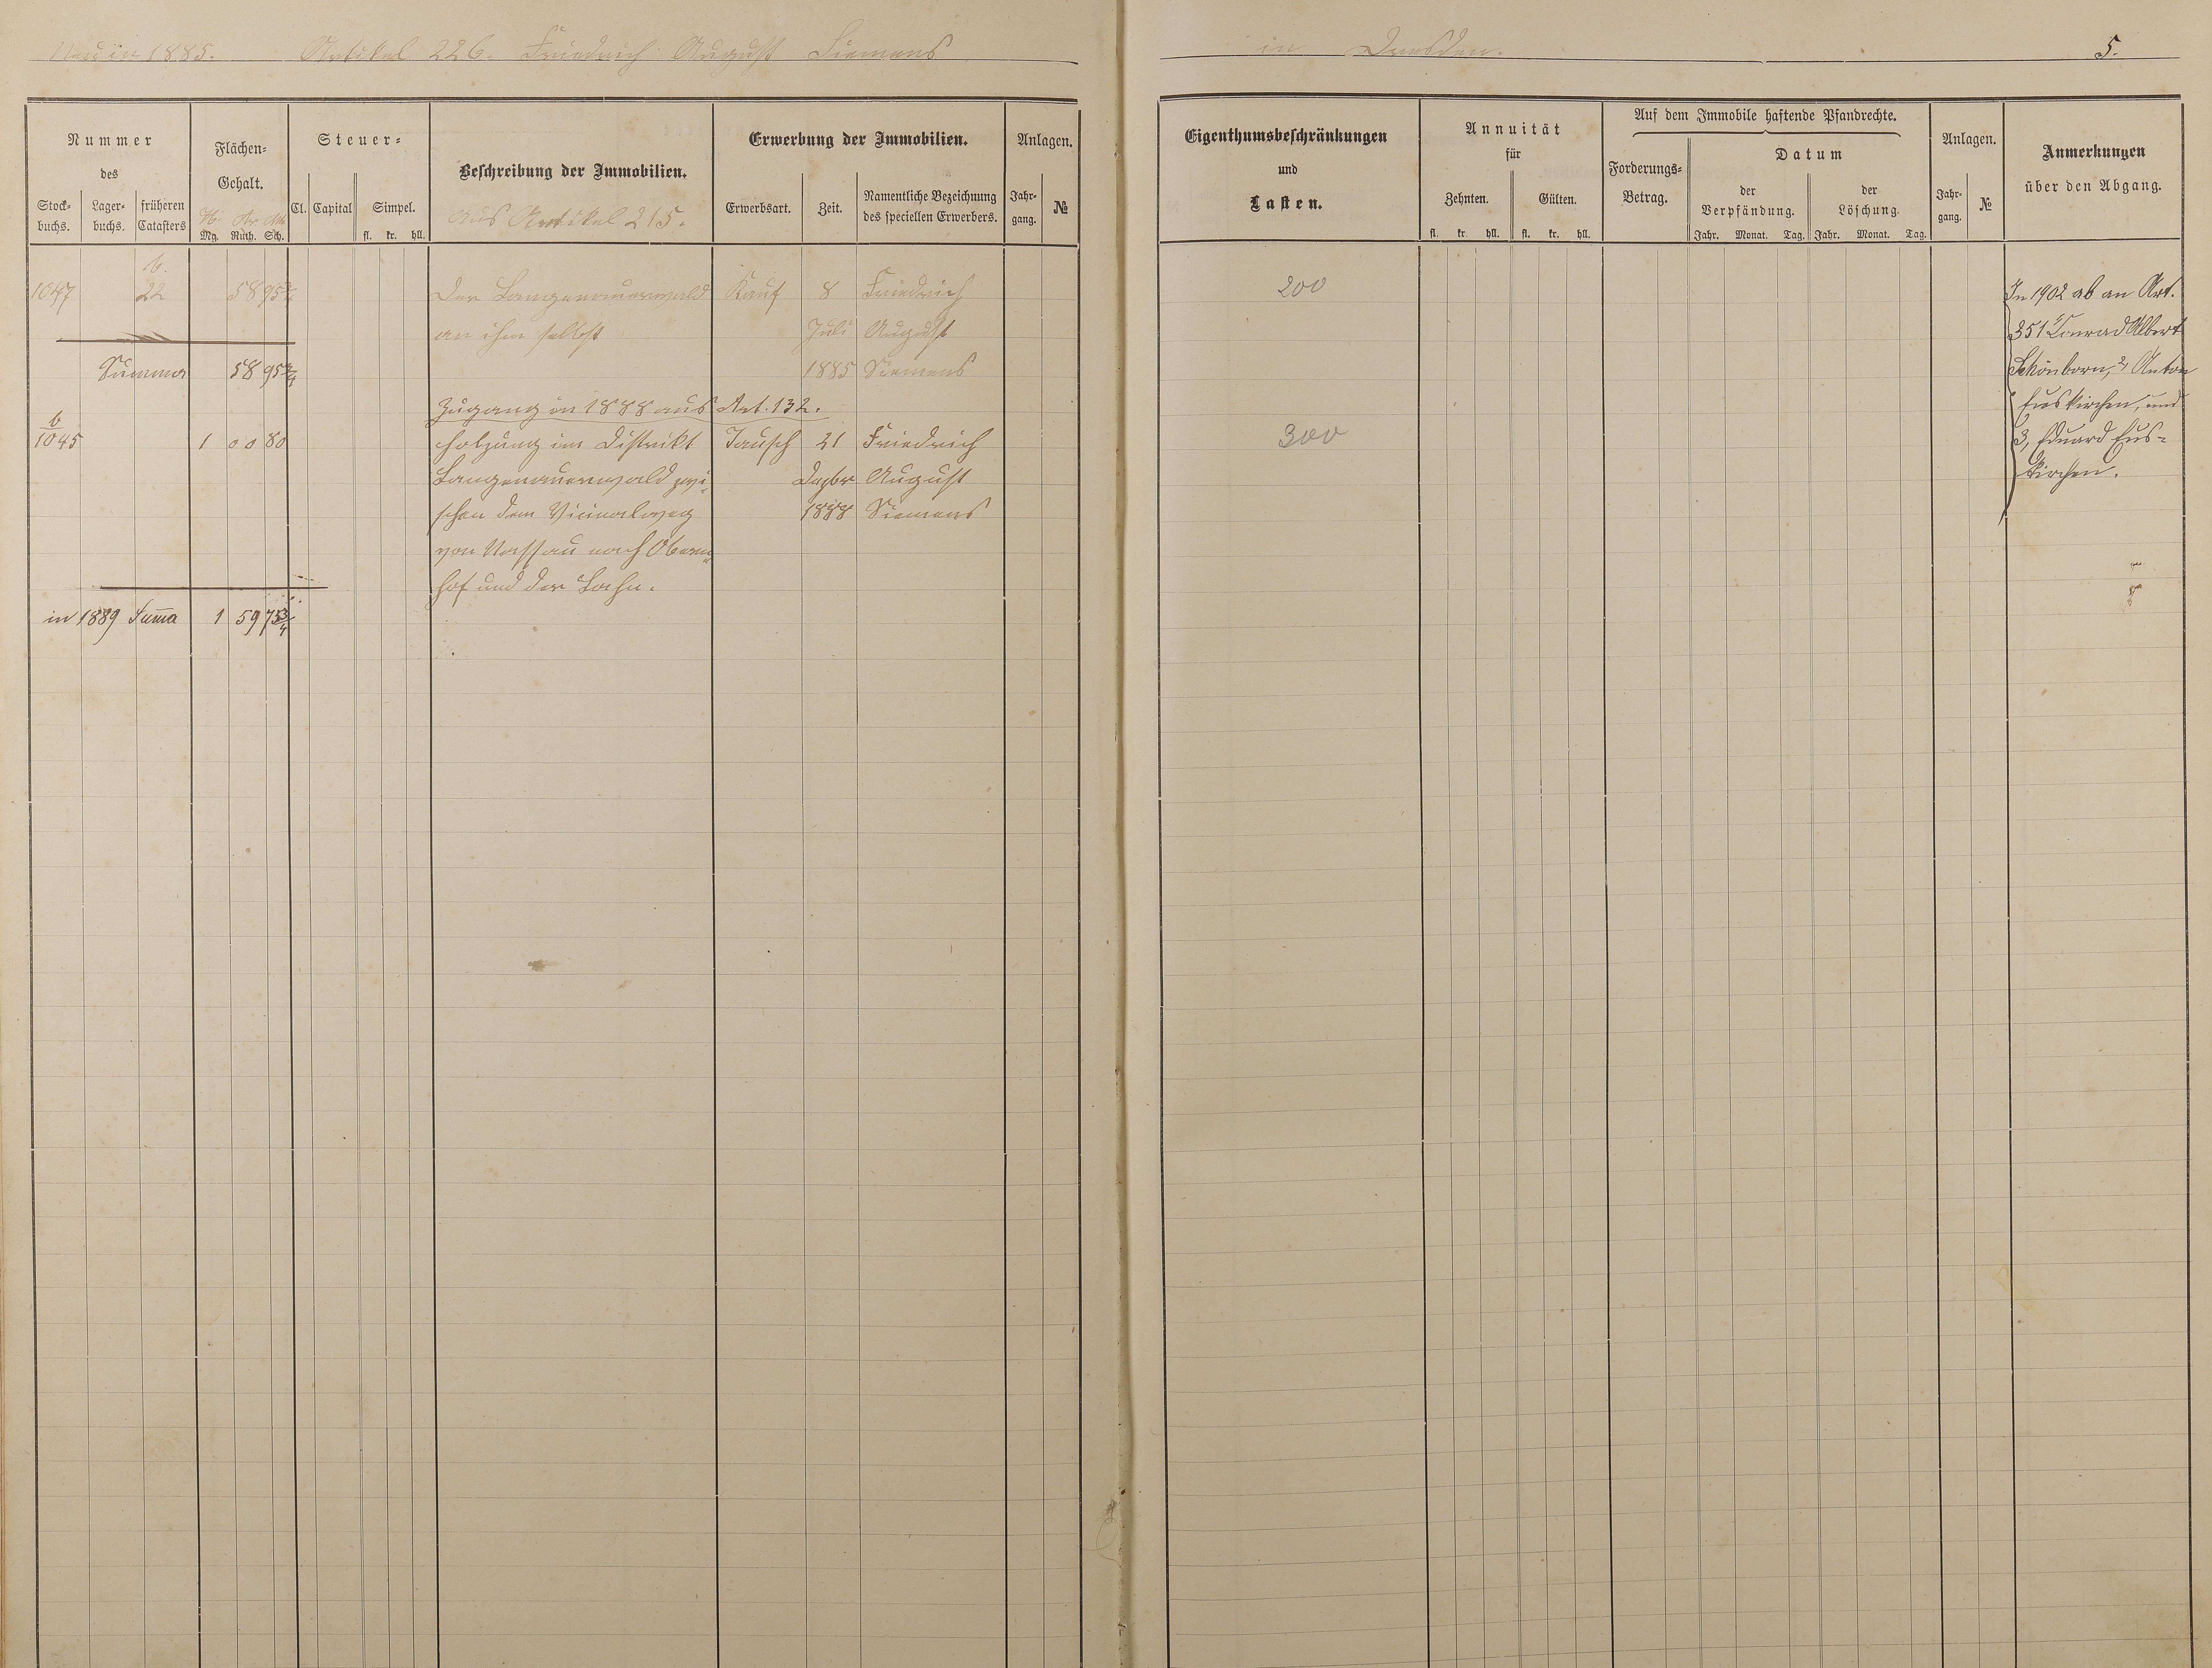 Neu in 1885. Artikel 226. Friedrich August Siemens
in Dresden. 5.
Nummer des
Stock-buchs. Lager-buchs. früheren Catasters
Flächen-Gehalt.
Mg. Ruth. Sch.
Steuer-
Cl. Capital Simpel.
fl. kr. hll.
Beschreibung der Immobilien.
aus Artikel 215.
Erwerbung der Immobilien.
Erwerbsart. Zeit. Namentliche Bezeichnung des speciellen Erwerbers.
Anlagen.
Jahr-gang. №
Eigenthumsbeschränkungen
und
Lasten.
Annuität
für
Zehnten. Gülten.
fl. kr. hll. fl. kr. hll.
Auf dem Immobile haftende Pfandrechte.
Forderungs-Betrag.
Datum
der Verpfändung. der Löschung.
Jahr. Monat. Tag. Jahr. Monat. Tag.
Anlagen.
Jahr-gang. №
Anmerkungen
über den Abgang.
b.
1047 22 58 95 3/4 Der Langenauerwald Kauf 8 Friedrich
an ihm selbst Juli August
Summa 58 95 3/4 1885 Siemens
Zugang in 1888 aus Art. 132.
b
1045 1 00 80 Holzung im Distrikt Tausch 21 Friedrich
Langenauerwald zwi- Dezbr August
schen dem Vicinalweg 1888 Siemens
von Nassau nach Obern-
hof und der Lahn.
in 1889 Suma 1 59 75 3/4
200
300
In 1902 ab an Art.
351 1, Conrad Albert
Schönborn, 2, Anton
Euskirchen, und
3, Eduard Eus-
kirchen.